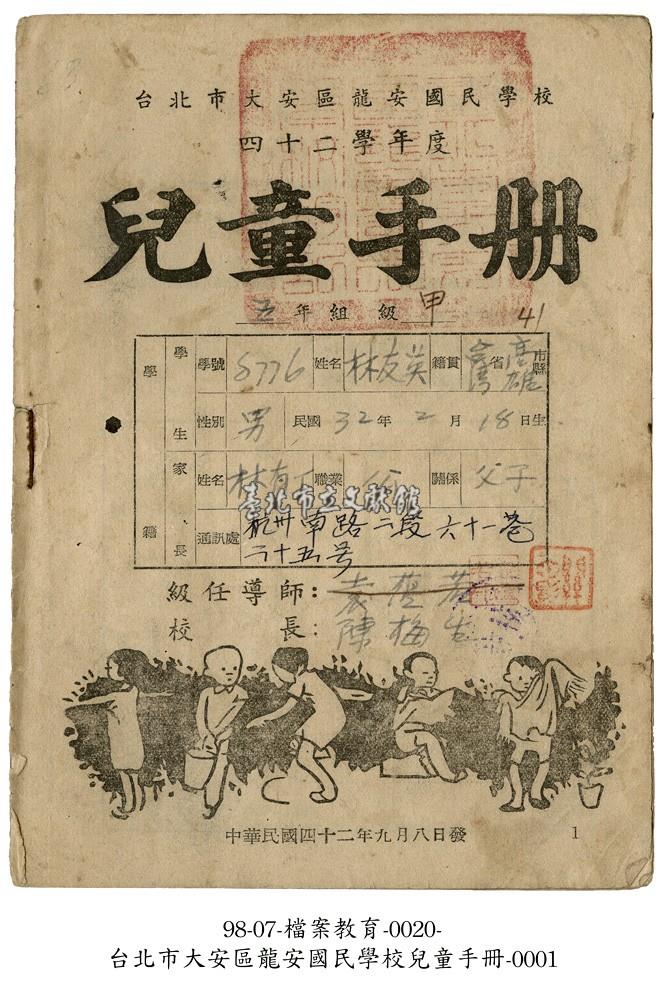 台北市大安區龍安國民學校
四十二學年度
兒童手册
五年組 級甲 41
學籍
學生
學號 8776 姓名 林友英 籍貫 臺灣省高雄市縣
性別 男 民國32年2月18日生
家長
姓名 林有 職業 關係 父子
通訊處 杭州南路二段六十一巷
二十五号
臺北市立文獻館
級任導師：袁檀若
校長：陳梅生
中華民國四十二年九月八日發
1
98-07-檔案教育-0020-
台北市大安區龍安國民學校兒童手冊-0001